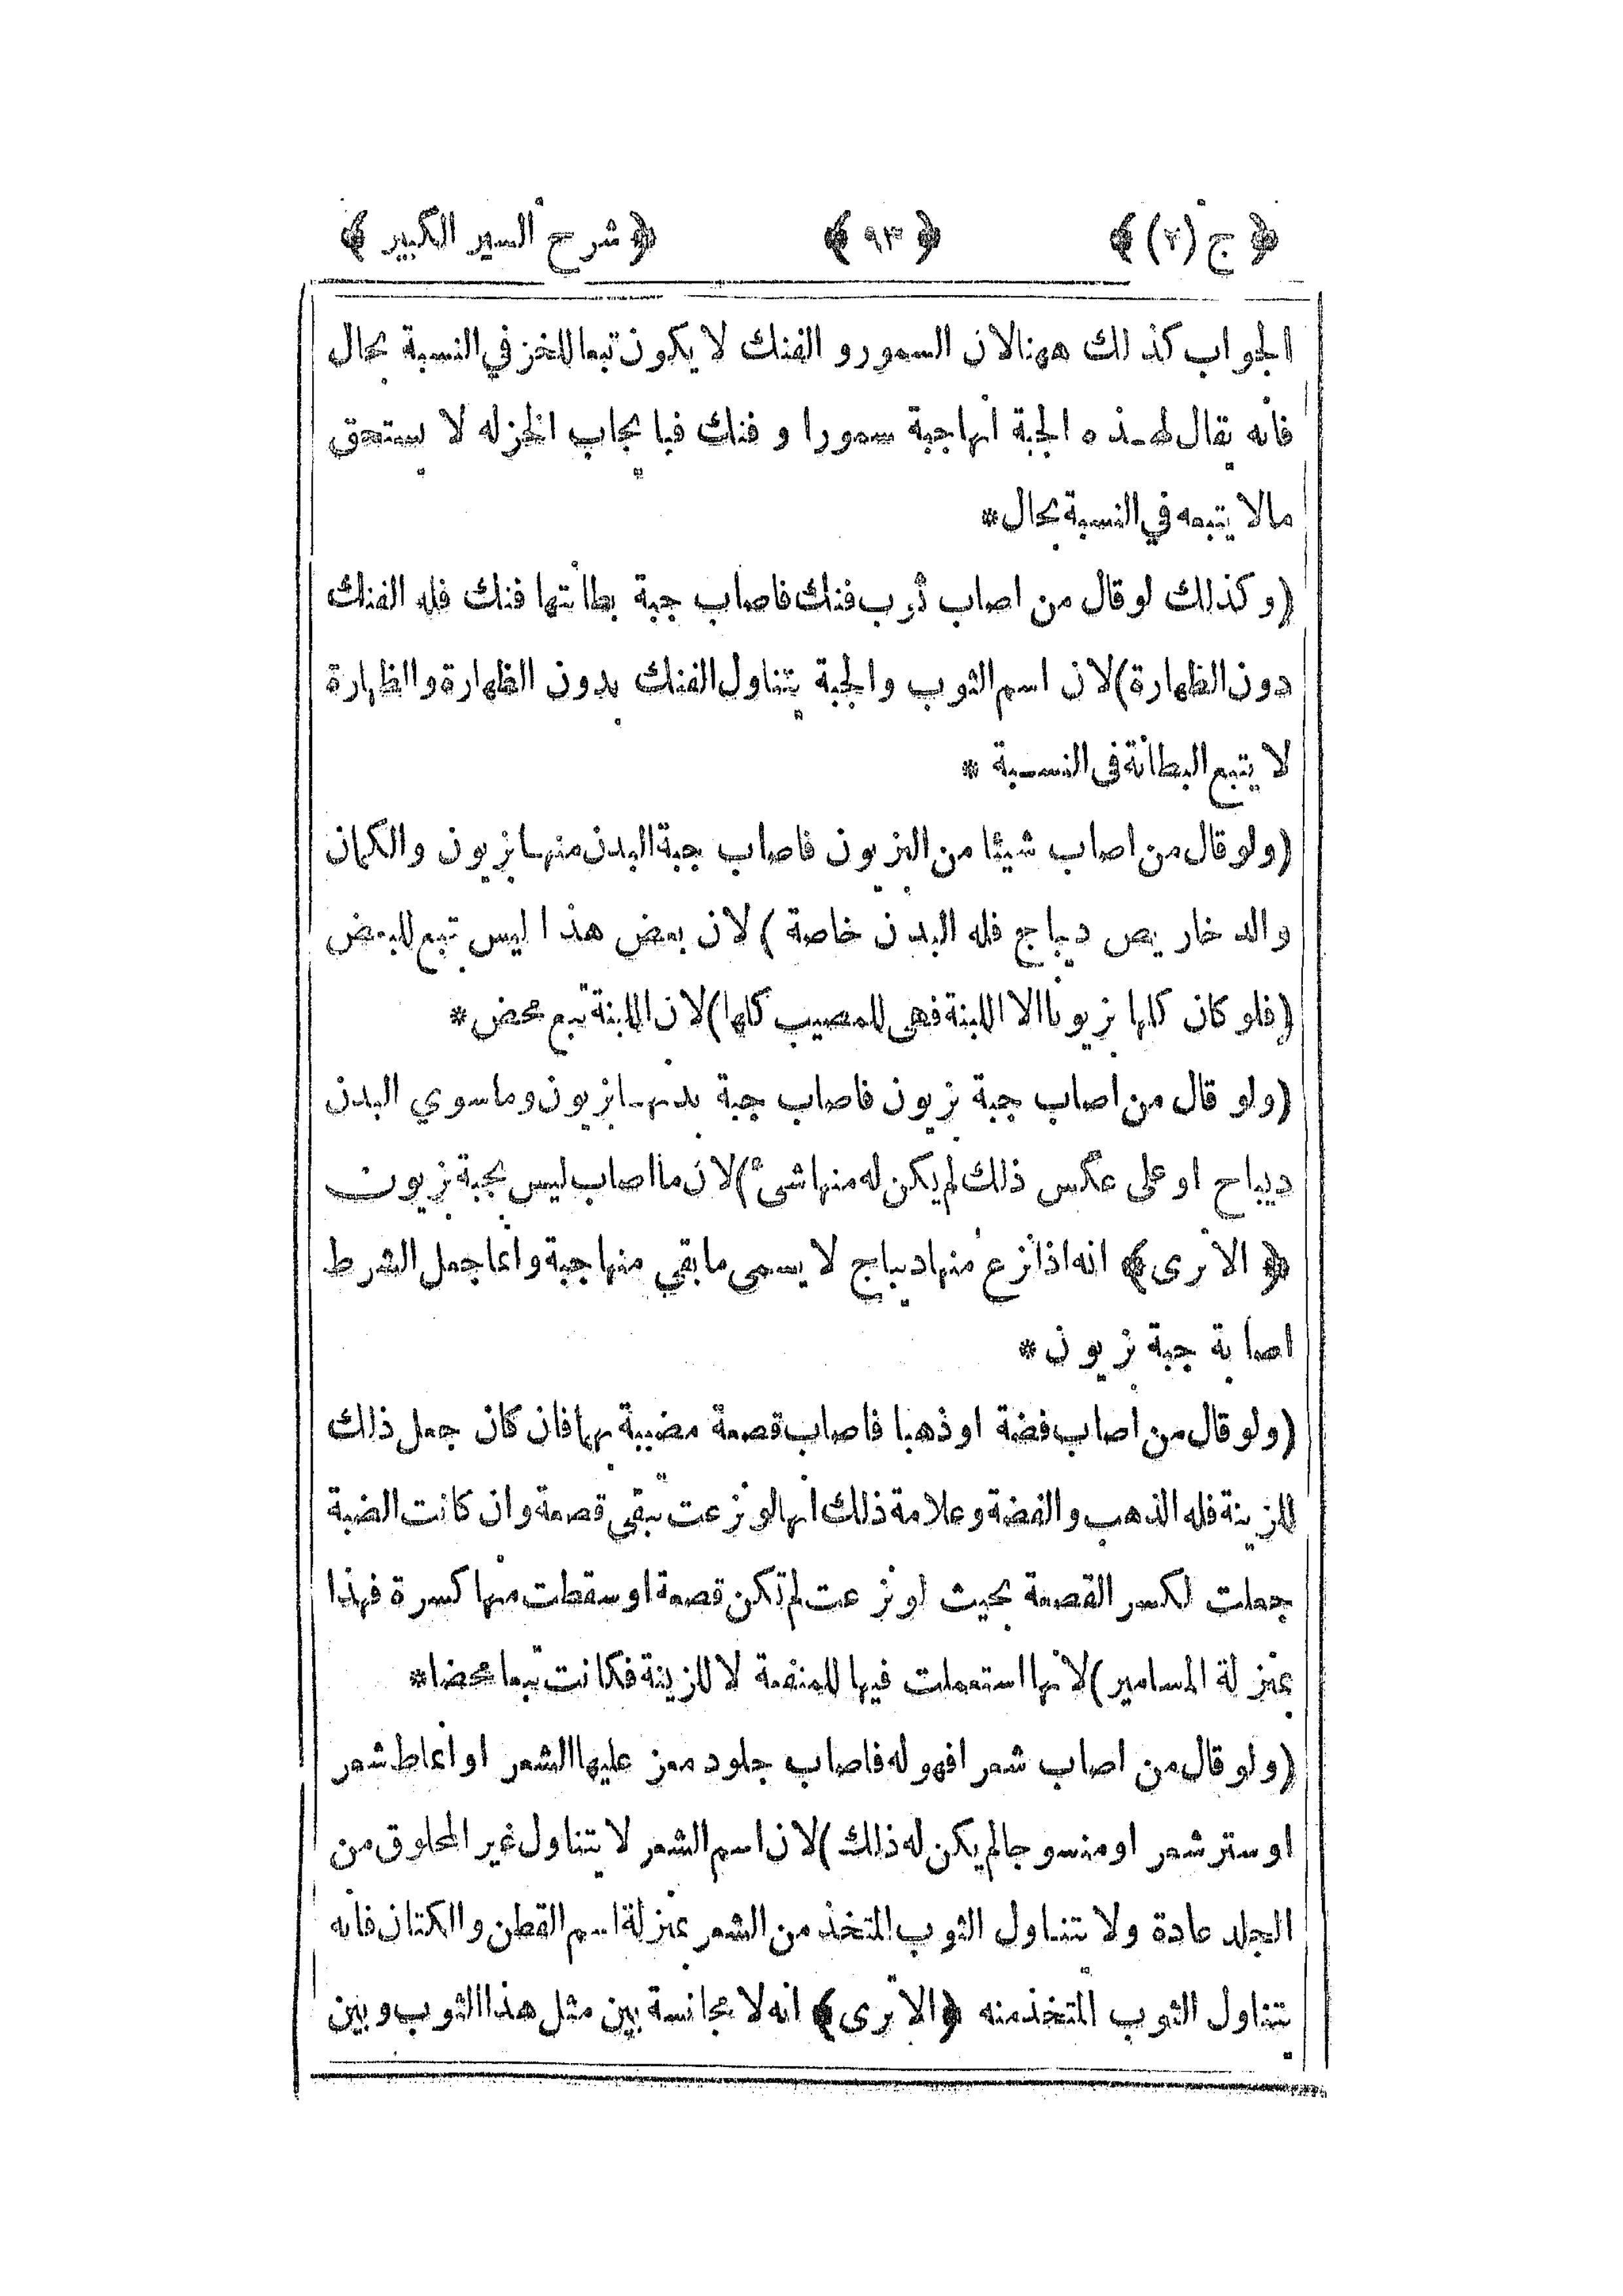 ﴿ ج (٢) ﴾ ﴿ ٩٣ ﴾ ﴿ شرح السير الكبير ﴾
الجواب كذلك ههنا لان السمور و الفنك لا يكون تبعا للخز في النسبة بحال
فانه يقال لهذه الجبة انها جبة سمور او فنك فبايجاب الخز له لا يستحق
مالا يتبعه في النسبة بحال*
(وكذلك لوقال من اصاب ثوب فنك فاصاب جبة بطانتها فنك فله الفنك
دون الظهارة) لان اسم الثوب والجبة يتناول الفنك بدون الظهارة والظهارة
لا يتبع البطانة في النسبة *
(ولو قال من اصاب شيئا من البزيون فاصاب جبة البدن منها بزيون والكمان
والدخاريص ديباج فله البدن خاصة ) لان بعض هذا ليس تبع للبعض
(فلو كان كلها بزيونا الا اللبنة فهي للمصيب كلها) لان اللبنة تبع محض*
(ولو قال من اصاب جبة بزيون فاصاب جبة بدنها بزيون وما سوي البدن
ديباج او على عكس ذلك لم يكن له منها شئ) لان ما اصاب ليس بجبة بزيون
﴿ الا ترى ﴾ انه اذا نزع منها ديباج لا يسمى ما بقي منها جبة وانما جعل الشرط
اصابة جبة بزيون *
(ولو قال من اصاب فضة او ذهبا فاصاب قصعة مضببة بهما فان كان جعل ذلك
للزينة فله الذهب والفضة وعلامة ذلك انها لو نزعت تبقى قصعة وان كانت الضبة
جعلت لكسر القصعة بحيث لو نزعت لم تكن قصعة او سقطت منها كسرة فهذا
بمنزلة المسامير) لانها استعملت فيها للمنفعة لا للزينة فكانت تبعا محضا*
(ولو قال من اصاب شعر افهو له فاصاب جلود معز عليها الشعر او انماط شعر
او ستر شعر او منسوجا لم يكن له ذلك) لان اسم الشعر لا يتناول غير المحلوق من
الجلد عادة ولا تتناول الثوب المتخذ من الشعر بمنزلة اسم القطن والكتان فانه
يتناول الثوب المتخذ منه ﴿ الا ترى ﴾ انه لا مجانسة بين مثل هذا الثوب وبين